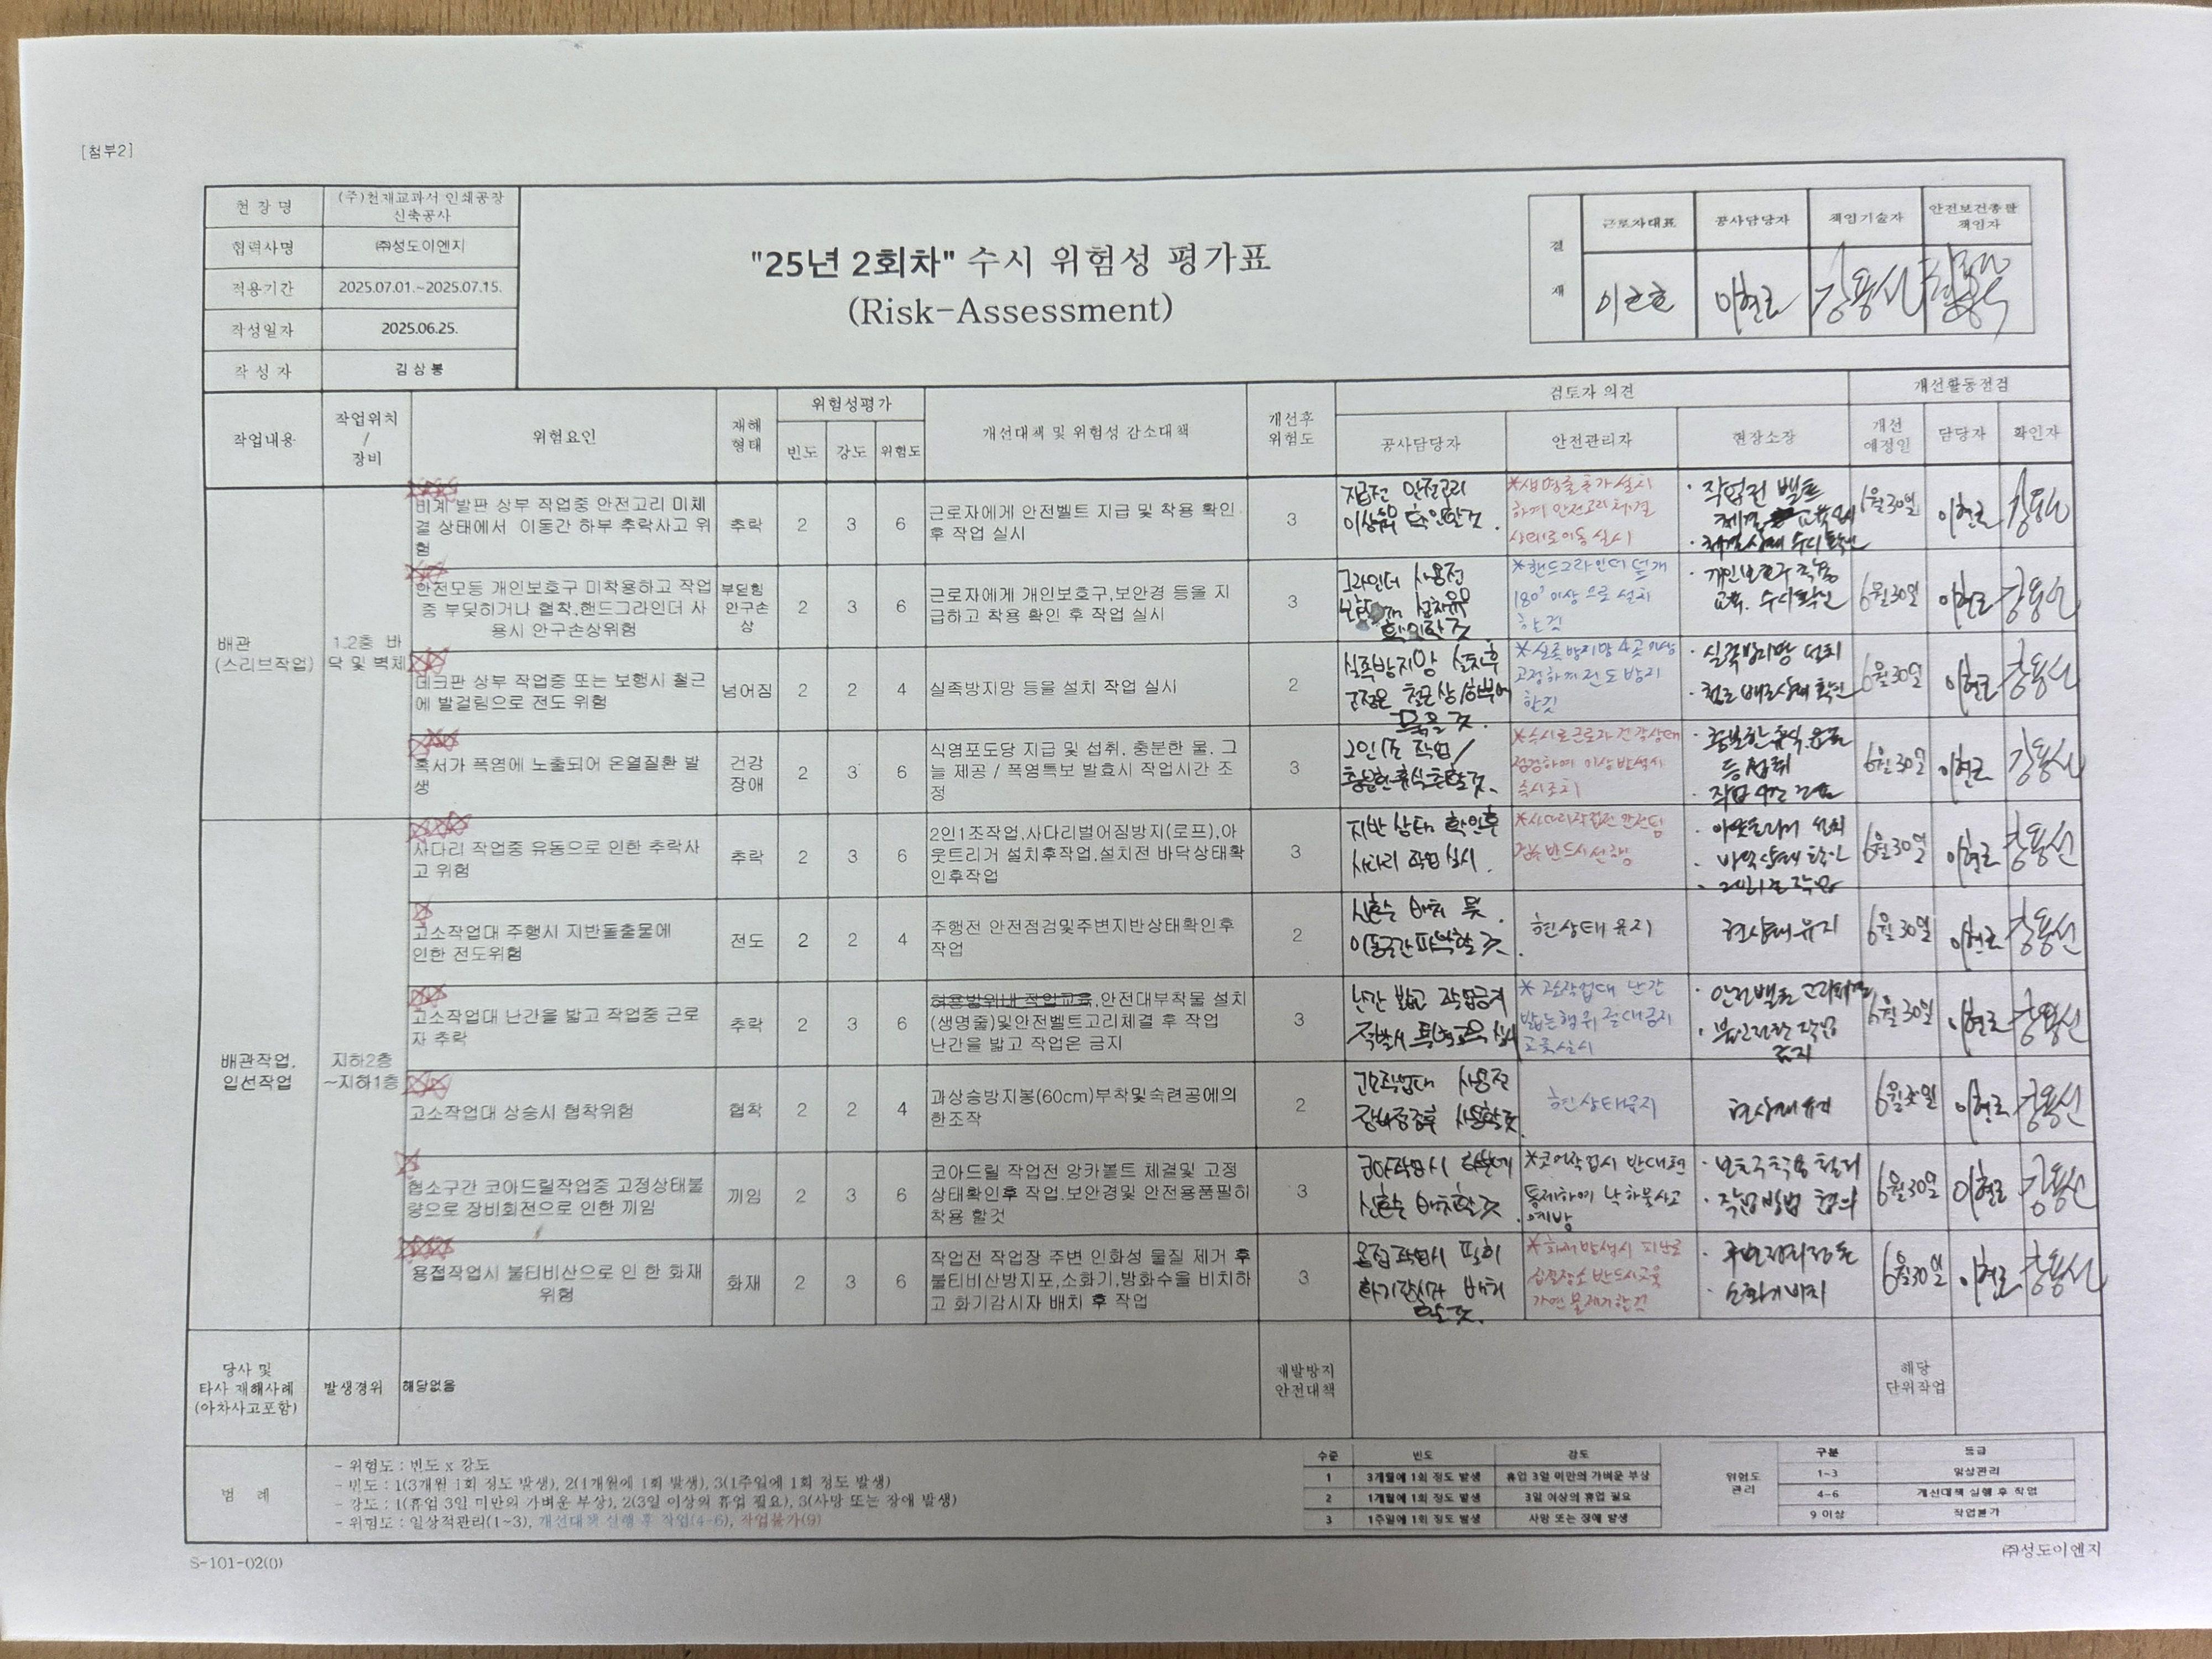 [첨부2]
현 장 명
(주)천재교과서 인쇄공장
신축공사
협력사명
㈜성도이엔지
적용기간
2025.07.01.~2025.07.15.
작성일자
2025.06.25.
작 성 자
김 상 봉
"25년 2회차" 수시 위험성 평가표
(Risk-Assessment)
결
재
근로자대표
공사담당자
책임기술자
안전보건총괄
책임자
이현로
강용선
작업내용
작업위치
/
장비
위험요인
재해
형태
위험성평가
빈도
강도
위험도
개선대책 및 위험성 감소대책
개선후
위험도
검토자 의견
공사담당자
안전관리자
현장소장
개선활동점검
개선
예정일
담당자
확인자
배관
(스리브작업)
1.2층 바
닥 및 벽체
비계 발판 상부 작업중 안전고리 미체
결 상태에서 이동간 하부 추락사고 위
험
추락
2
3
6
근로자에게 안전벨트 지급 및 착용 확인
후 작업 실시
3
지급전 안전고리
이상유무 확인할것.
*생명줄 추가 설치
하여 안전고리 체결
상태로 이동 실시
· 작업전 벨트
체결 교육
· 체결상태 수시 확인
6월 30일
이현로
강용선
안전모등 개인보호구 미착용하고 작업
중 부딪히거나 협착,핸드그라인더 사
용시 안구손상위험
부딪힘
안구손
상
2
3
6
근로자에게 개인보호구,보안경 등을 지
급하고 착용 확인 후 작업 실시
3
그라인더 사용전
확인할 것
*핸드그라인더 덮개
180° 이상 으로 설치
할 것
· 개인보호구 착용
교육. 수시확인
6월 30일
이현로
강용선
데크판 상부 작업중 또는 보행시 철근
에 발걸림으로 전도 위험
넘어짐
2
2
4
실족방지망 등을 설치 작업 실시
2
실족방지망 설치후
고정은 철근 상/하부에
묶을 것.
*실족방지망 4곳 이상
고정하여 전도 방지
할것
· 실족방지망 설치
· 철근 배근상태 확인
6월 30일
이현로
강용선
혹서가 폭염에 노출되어 온열질환 발
생
건강
장애
2
3
6
식염포도당 지급 및 섭취, 충분한 물, 그
늘 제공 / 폭염특보 발효시 작업시간 조
정
3
2인1조 작업/
충분한 휴식 취할것.
*수시로 근로자 건강상태
점검하여 이상 발생시
수시조치
· 충분한 휴식, 음료
등 섭취
· 작업 시간 준수
6월 30일
이현로
강용선
배관작업,
입선작업
지하2층
~지하1층
사다리 작업중 유동으로 인한 추락사
고 위험
추락
2
3
6
2인1조작업,사다리벌어짐방지(로프),아
웃트리거 설치후작업,설치전 바닥상태확
인후작업
3
지반 상태 확인후
사다리 작업 실시.
*사다리작업전 안전팀
검수 반드시 선행
· 아웃트리거 설치
· 바닥상태 확인
· 2인1조 작업
6월 30일
이현로
강용선
고소작업대 주행시 지반돌출물에
인한 전도위험
전도
2
2
4
주행전 안전점검및주변지반상태확인후
작업
2
신호수 배치 및.
이동구간 파악할 것.
현상태 유지
현상태 유지
6월 30일
이현로
강용선
고소작업대 난간을 밟고 작업중 근로
자 추락
추락
2
3
6
허용범위내 작업교육,안전대부착물 설치
(생명줄)및안전벨트고리체결 후 작업
난간을 밟고 작업은 금지
3
난간 밟고 작업금지
적발시 특별교육 실시
* 고소작업대 난간
밟는행위 절대금지
교육실시
· 안전벨트 고리체결
· 불안전한 작업
금지
6월 30일
이현로
강용선
고소작업대 상승시 협착위험
협착
2
2
4
과상승방지봉(60cm)부착및숙련공에의
한조작
2
고소작업대 사용전
장비점검후 사용할것.
현상태유지
현상태 유지
6월 30일
이현로
강용선
협소구간 코아드릴작업중 고정상태불
량으로 장비회전으로 인한 끼임
끼임
2
3
6
코아드릴 작업전 앙카볼트 체결및 고정
상태확인후 작업.보안경및 안전용품필히
착용 할것
3
코아작업시 하부에
신호수 배치할 것.
*코어작업시 반대편
통제하여 낙하물사고
예방
· 보호구착용 철저
· 작업방법 협의
6월 30일
이현로
강용선
용접작업시 불티비산으로 인 한 화재
위험
화재
2
3
6
작업전 작업장 주변 인화성 물질 제거 후
불티비산방지포,소화기,방화수을 비치하
고 화기감시자 배치 후 작업
3
용접 작업시 필히
화기감시자 배치
할 것.
*화재발생시 피난로
집결장소 반드시교육
가연물제거할것
· 주변정리정돈
· 소화기 비치
6월 30일
이현로
강용선
당사 및
타사 재해사례
(아차사고포함)
발생경위
해당없음
재발방지
안전대책
해당
단위작업
범 례
- 위험도 : 빈도 x 강도
- 빈도 : 1(3개월 1회 정도 발생), 2(1개월에 1회 발생), 3(1주일에 1회 정도 발생)
- 강도 : 1(휴업 3일 미만의 가벼운 부상), 2(3일 이상의 휴업 필요), 3(사망 또는 장애 발생)
- 위험도 : 일상적관리(1~3), 개선대책 실행 후 작업(4~6), 작업불가(9)
수준
빈도
강도
1
3개월에 1회 정도 발생
휴업 3일 미만의 가벼운 부상
2
1개월에 1회 정도 발생
3일 이상의 휴업 필요
3
1주일에 1회 정도 발생
사망 또는 장애 발생
위험도
관리
구분
등급
1~3
일상관리
4~6
개선대책 실행 후 작업
9 이상
작업불가
S-101-02(0)
㈜성도이엔지